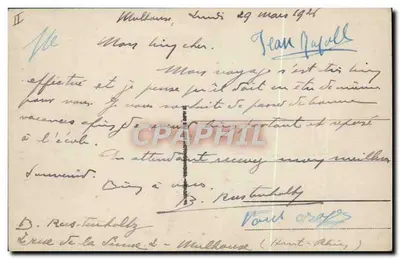 II
Mulhouse, Lundi 29 mars 1921
Mon bien cher.
Jean
Mon voyage s'est très bien
effectué et je pense qu'il doit en être de même
pour vous. Je vous souhaite de passer de bonnes
vacances afin de bien portant et reposé
à l'école.
En attendant recevez mon meilleur
souvenir.
Bien à vous.
B. Rustenholtz
CPAPHIL
B. Rustenholtz
rue de la 2 - Mulhouse (Haut-Rhin)